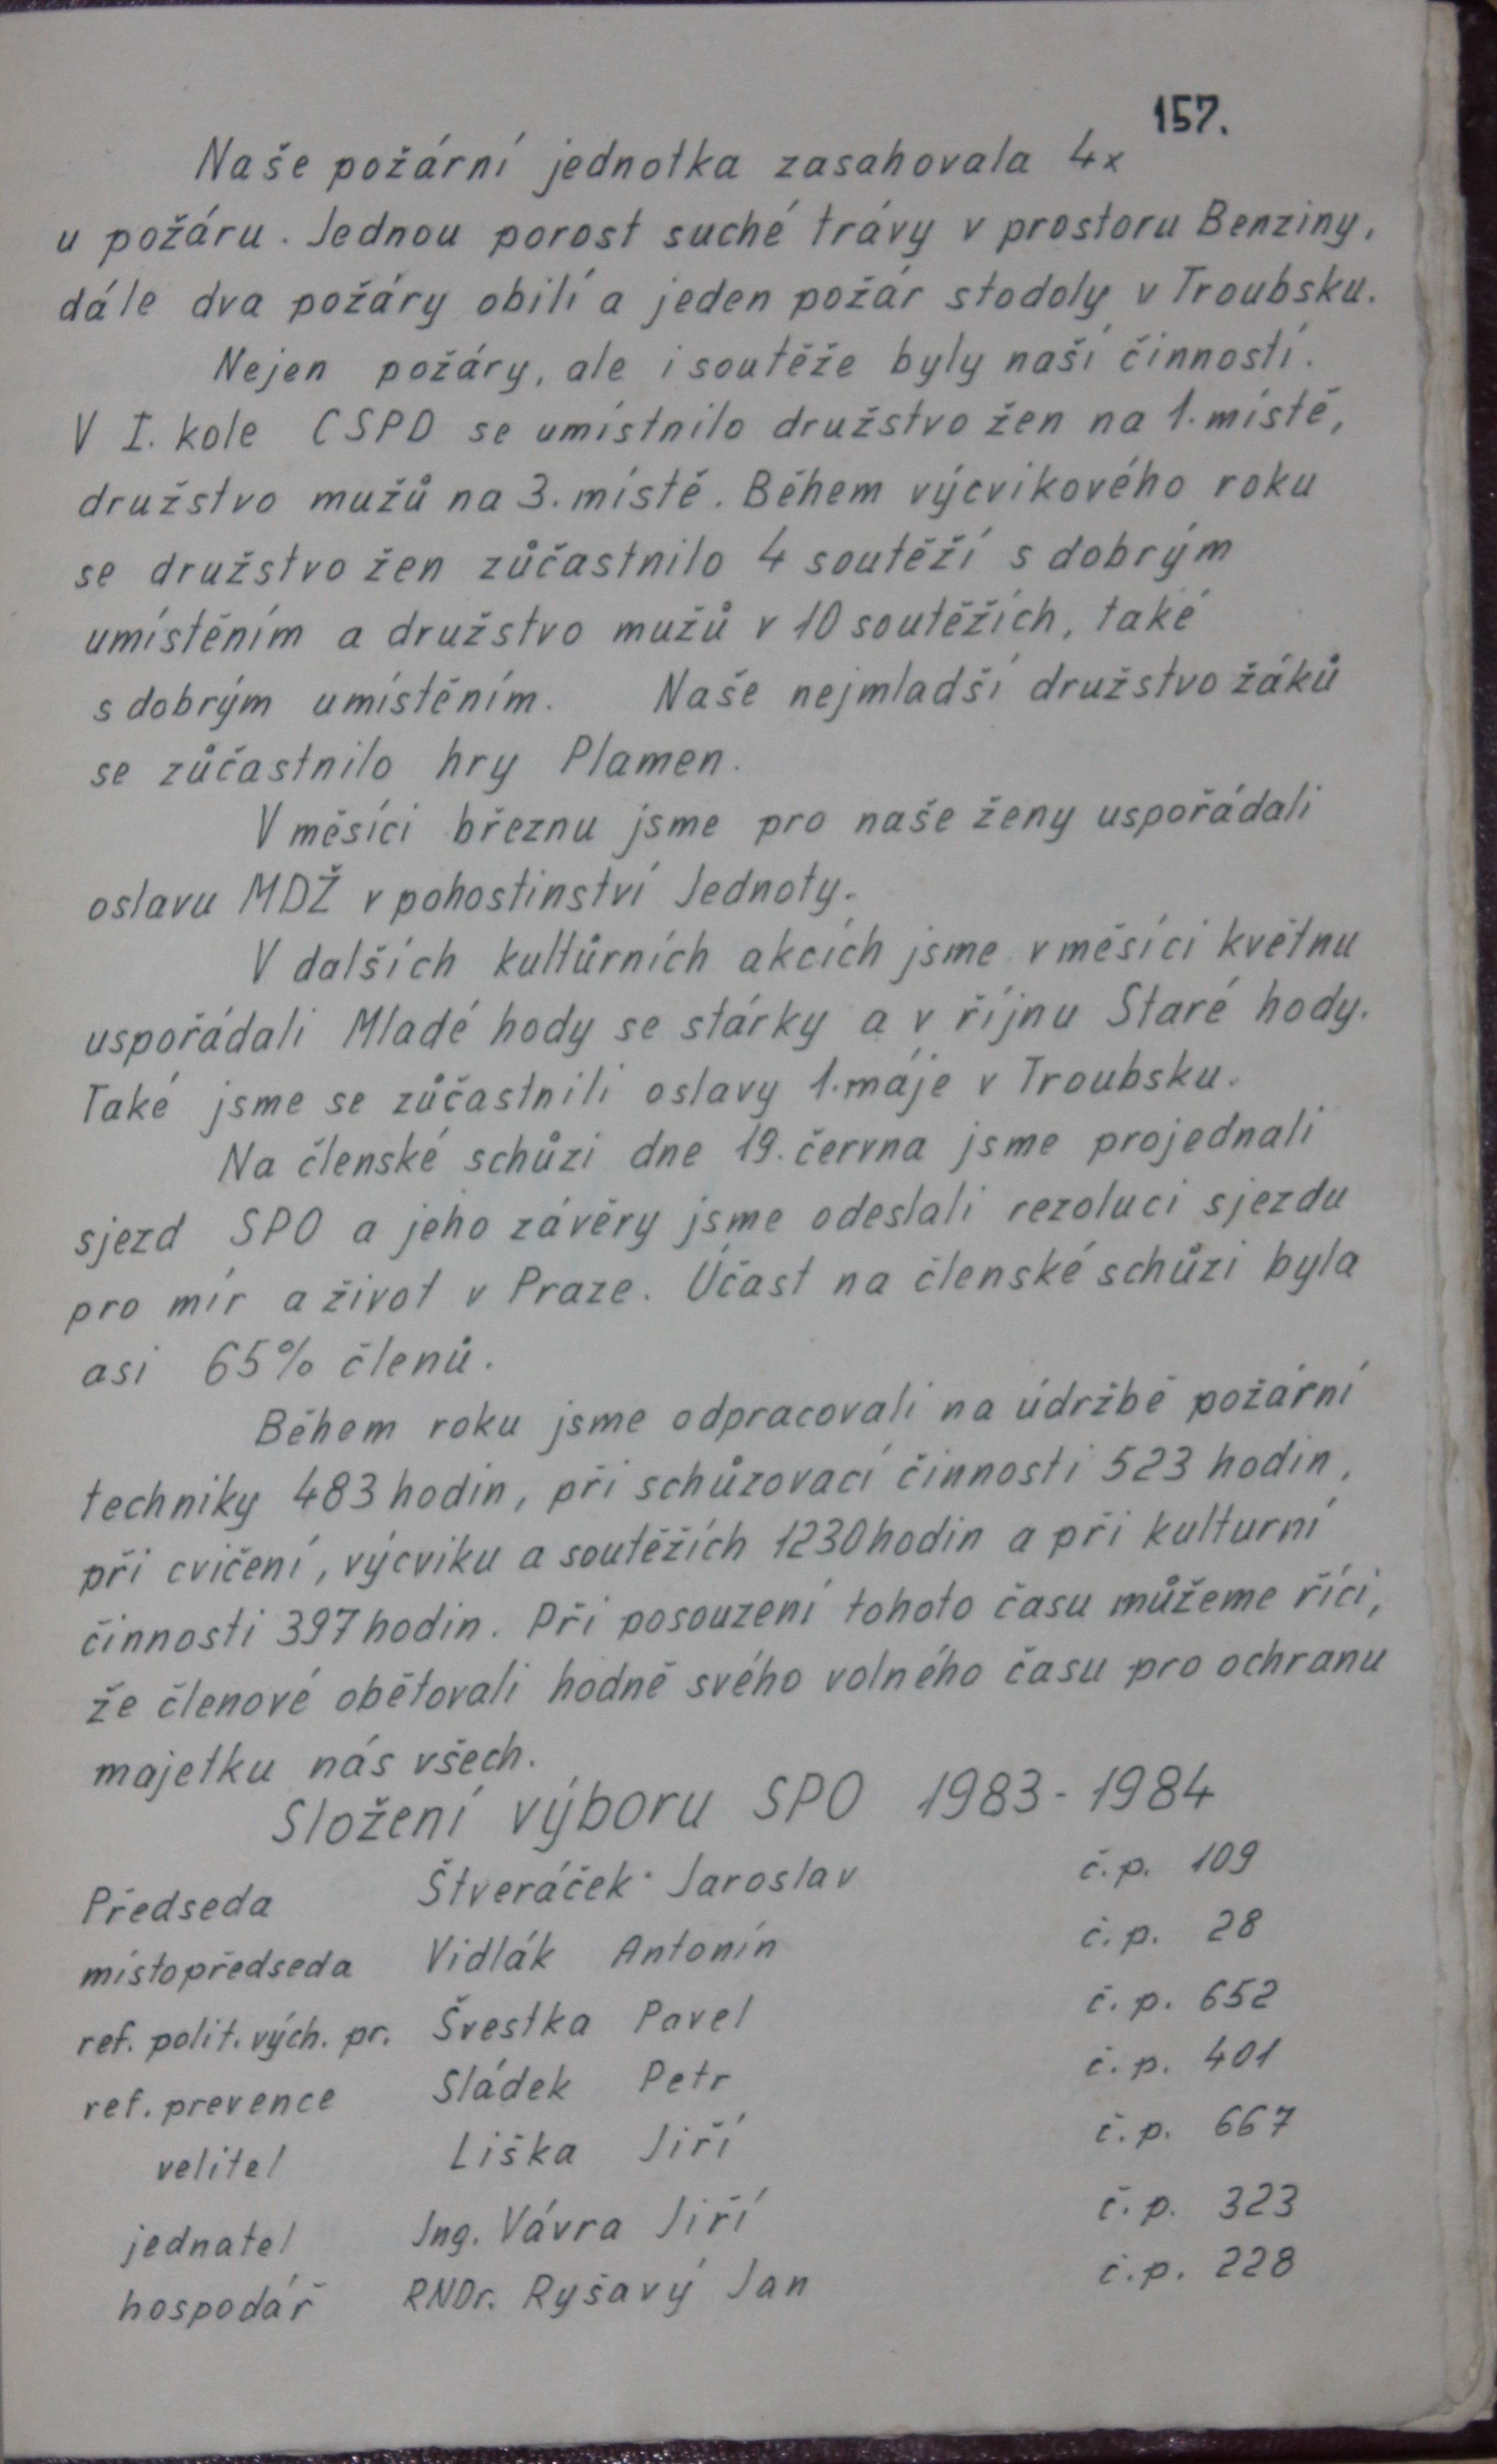 157.
Naše požární jednotka zasahovala 4x
u požáru. Jednou porost suché trávy v prostoru Benziny,
dále dva požáry obilí a jeden požár stodoly v Troubsku.
Nejen požáry, ale i soutěže byly naší činností.
V I. kole CSPD se umístnilo družstvo žen na 1. místě,
družstvo mužů na 3. místě. Během výcvikového roku
se družstvo žen zůčastnilo 4 soutěží s dobrým
umístěním a družstvo mužů v 10 soutěžích, také
s dobrým umístěním. Naše nejmladší družstvo žáků
se zůčastnilo hry Plamen.
V měsíci březnu jsme pro naše ženy uspořádali
oslavu MDŽ v pohostinství Jednoty.
V dalších kultůrních akcích jsme v měsíci květnu
uspořádali Mladé hody se stárky a v říjnu Staré hody.
Také jsme se zůčastnili oslavy 1. máje v Troubsku.
Na členské schůzi dne 19. června jsme projednali
sjezd SPO a jeho závěry jsme odeslali rezoluci sjezdu
pro mír a život v Praze. Účast na členské schůzi byla
asi 65% členů.
Během roku jsme odpracovali na údržbě požární
techniky 483 hodin, při schůzovací činnosti 523 hodin,
při cvičení, výcviku a soutěžích 1230 hodin a při kulturní
činnosti 397 hodin. Při posouzení tohoto času můžeme říci,
že členové obětovali hodně svého volného času pro ochranu
majetku nás všech.
Složení výboru SPO 1983 - 1984
Předseda Štveráček Jaroslav č.p. 109
místopředseda Vidlák Antonín č.p. 28
ref. polit. vých. pr. Švestka Pavel č.p. 652
ref. prevence Sládek Petr č.p. 401
velitel Liška Jiří č.p. 667
jednatel Ing. Vávra Jiří č.p. 323
hospodář RNDr. Ryšavý Jan č.p. 228